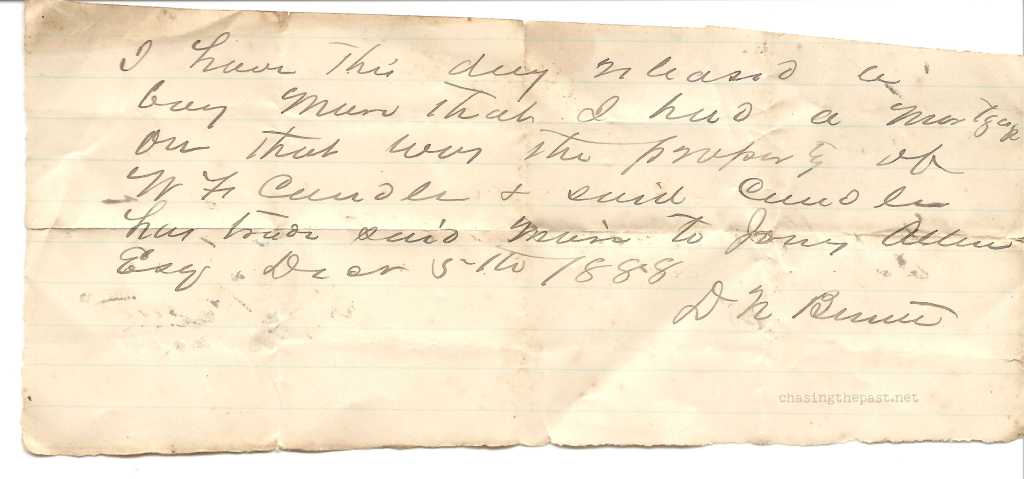 I have this day released a
bay Mare that I had a Mortgage
on that was the property of
W F Candler & said Candler
has trade said Mare to Jony Allen
Esq Decr 5th 1888
D N
chasingthepast.net